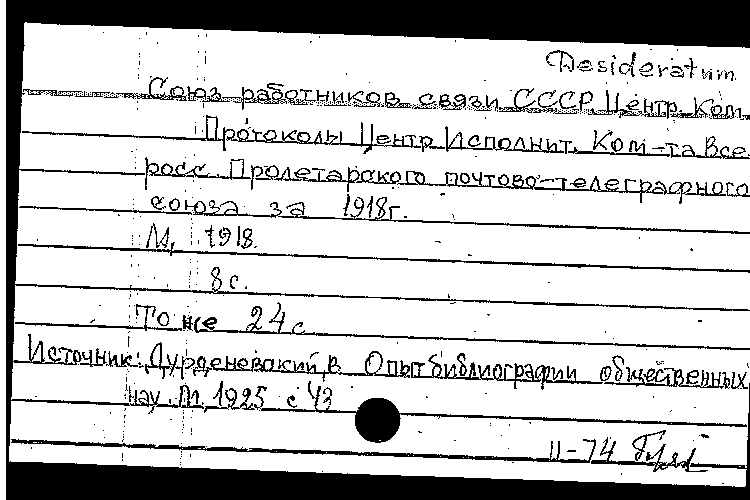 Desideratum
Союз работников связи СССР. Центр. Ком.
Протоколы Центр. Исполнит. Ком-та Все
росс. Пролетарского почтово-телеграфного
союза за 1918г.
М., 1918.
8 с.
То же 24 с
Источник: Дурденевский, В. Опыт библиографии общественных
нау. М., 1925 с 43
II-74